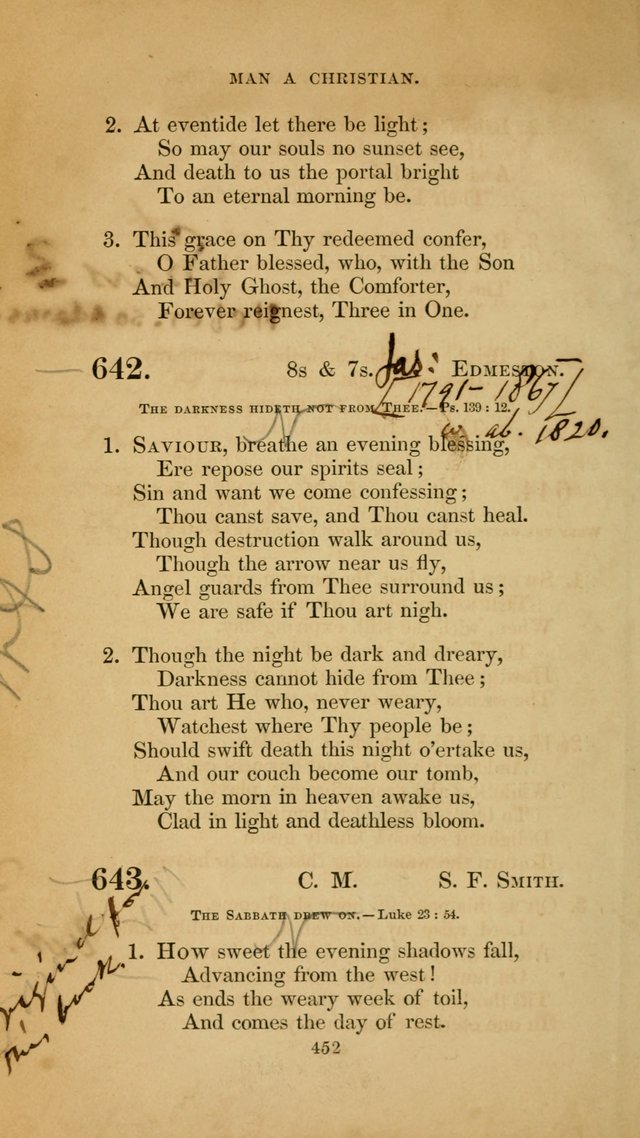 MAN A CHRISTIAN.
2. At eventide let there be light;
So may our souls no sunset see,
And death to us the portal bright
To an eternal morning be.
3. This grace on Thy redeemed confer,
O Father blessed, who, with the Son
And Holy Ghost, the Comforter,
Forever reignest, Three in One.
642. 8s & 7s. Jas: EDMESTON.
[1791-1867]
THE DARKNESS HIDETH NOT FROM THEE.—Ps. 139 : 12.
w. ab. 1820.
1. SAVIOUR, breathe an evening blessing,
Ere repose our spirits seal;
Sin and want we come confessing;
Thou canst save, and Thou canst heal.
Though destruction walk around us,
Though the arrow near us fly,
Angel guards from Thee surround us;
We are safe if Thou art nigh.
2. Though the night be dark and dreary,
Darkness cannot hide from Thee;
Thou art He who, never weary,
Watchest where Thy people be;
Should swift death this night o'ertake us,
And our couch become our tomb,
May the morn in heaven awake us,
Clad in light and deathless bloom.
643. C. M. S. F. SMITH.
THE SABBATH DREW ON.—Luke 23 : 54.
original for
this book.
1. How sweet the evening shadows fall,
Advancing from the west!
As ends the weary week of toil,
And comes the day of rest.
452